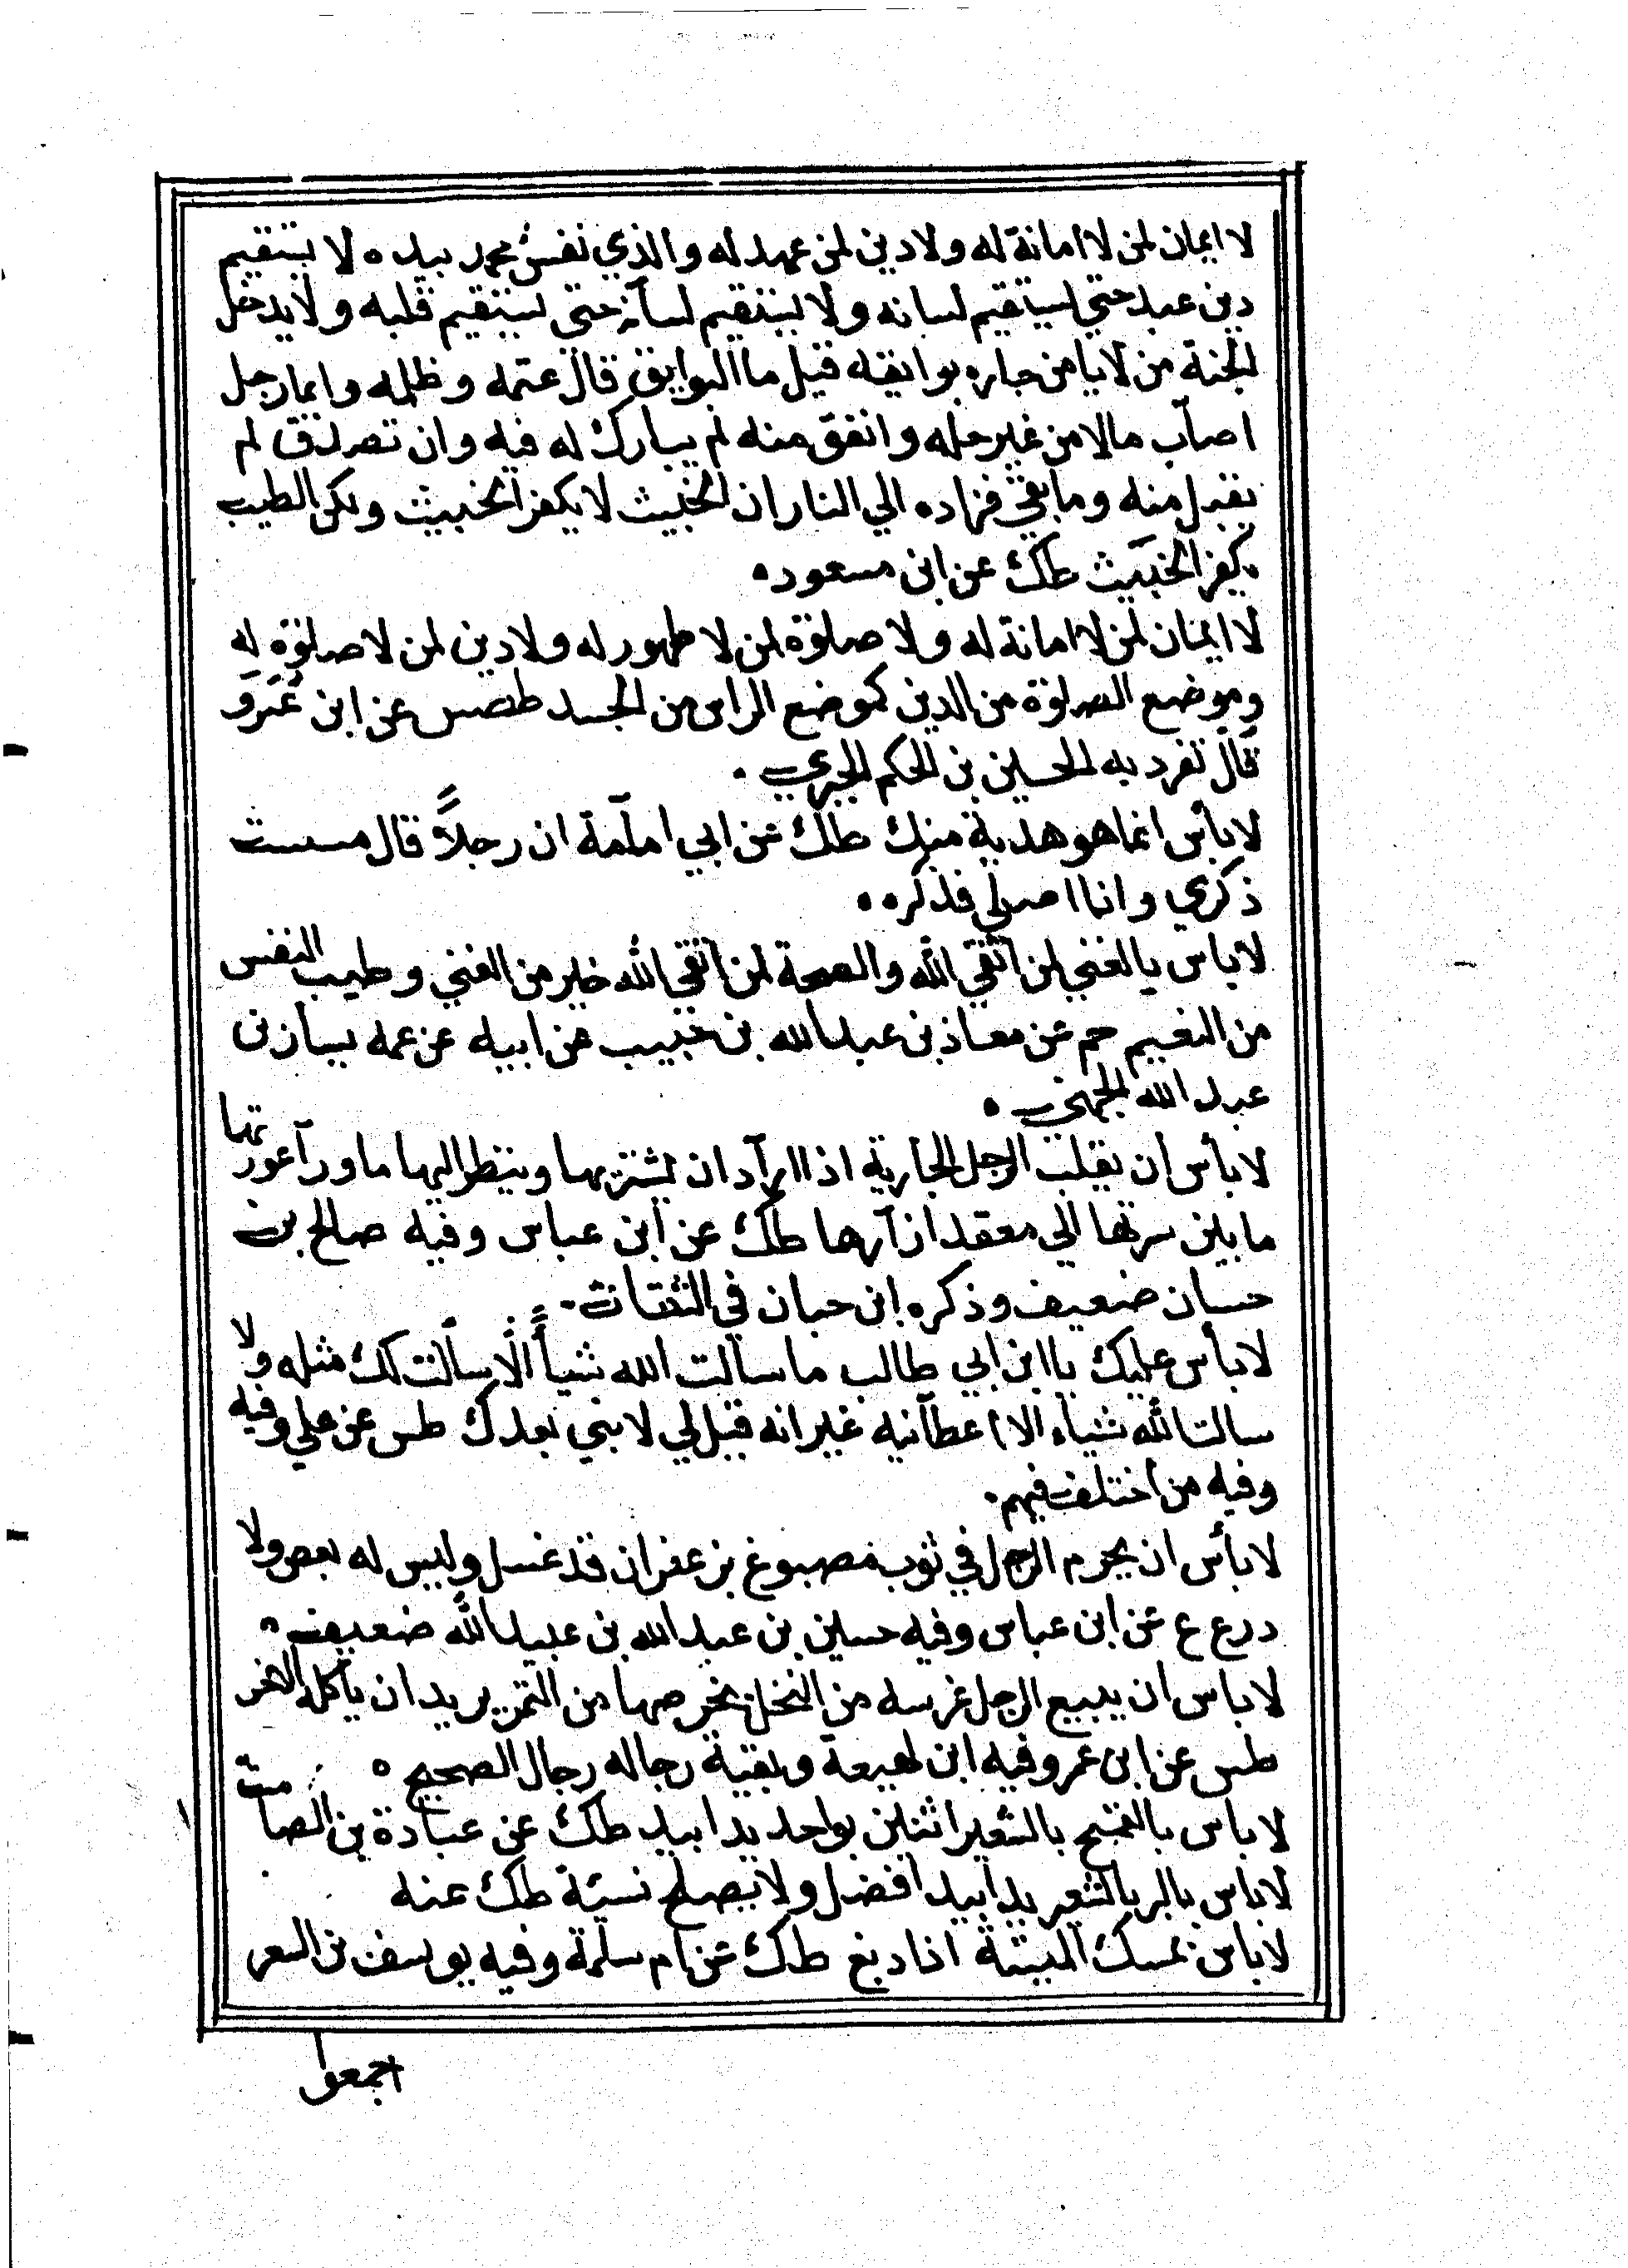 لا ايمان لمن لا امانة له ولا دين لمن عهد له والذي نفس محمد بيده لا يستقيم
دين عبد حتي يستقيم لسانه ولا يستقيم لسانه حتى يستقيم قلبه ولا يدخل
الجنة من لا يامن جاره بوايقه قيل ما البوايق قال غشمه وظلمه وايما رجل
اصاب مالا من غير حله وانفق منه لم يبارك له فيه وان تصدق لم
يقبل منه وما بقي فزاده الي النار ان الخبيث لا يكفر الخبيث ولكن الطيب
يكفر الخبيث طك عن ابن مسعود
لا ايمان لمن لا امانة له ولا صلوة لمن لا طهور له ولا دين لمن لا صلوة له
وموضع الصلوة من الدين كموضع الراس من الجسد طصس عن ابن عمرو
قال تفرد به الحسين بن الحكم الحبري
لا بأس انما هو هدية منك طك عن ابي امامة ان رجلاً قال مسست
ذكري وانا اصلي فذكره
لا باس بالغني لمن اتقي الله والصحة لمن اتقي الله خير من الغني وطيب النفس
من النعيم حم عن معاذ بن عبد الله بن خبيب عن ابيه عن عمه يسار بن
عبد الله الجهني
لا بأس ان يقلب الرجل الجارية اذا اراد ان يشتريها وينظر اليها ما ورآ عورتها
ما بين سرتها الي معقد ازارها طك عن ابن عباس وفيه صالح بن
حسان ضعيف وذكره ابن حبان في الثقات
لا بأس عليك يا ابن ابي طالب ما سالت الله شياً الا سالت لك مثله ولا
سالت الله شياء الا اعطانيه غير انه قيل لي لا نبي بعدك طس عن علي وفيه
وفيه من اختلف فيهم
لا بأس ان يحرم الرجل في ثوب مصبوغ بزعفران قد غسل وليس له نفض ولا
درع ع عن ابن عباس وفيه حسين بن عبد الله بن عبيد الله ضعيف
لا باس ان يبيع الرجل غرسه من النخل بخرصها من التمر يريد ان ياكله الاخر
طس عن ابن عمر وفيه ابن لهيعة وبقية رجاله رجال الصحيح
لا باس بالقمح بالشعير اثنين بواحد يدا بيد طك عن عبادة بن الصامت
لا باس بالبر بالشعير يدا بيد افضل ولا يصلح نسئة طك عنه
لا باس بمسك الميتة اذا دبغ طك عن ام سلمة وفيه يوسف بن السفر
اجمعوا